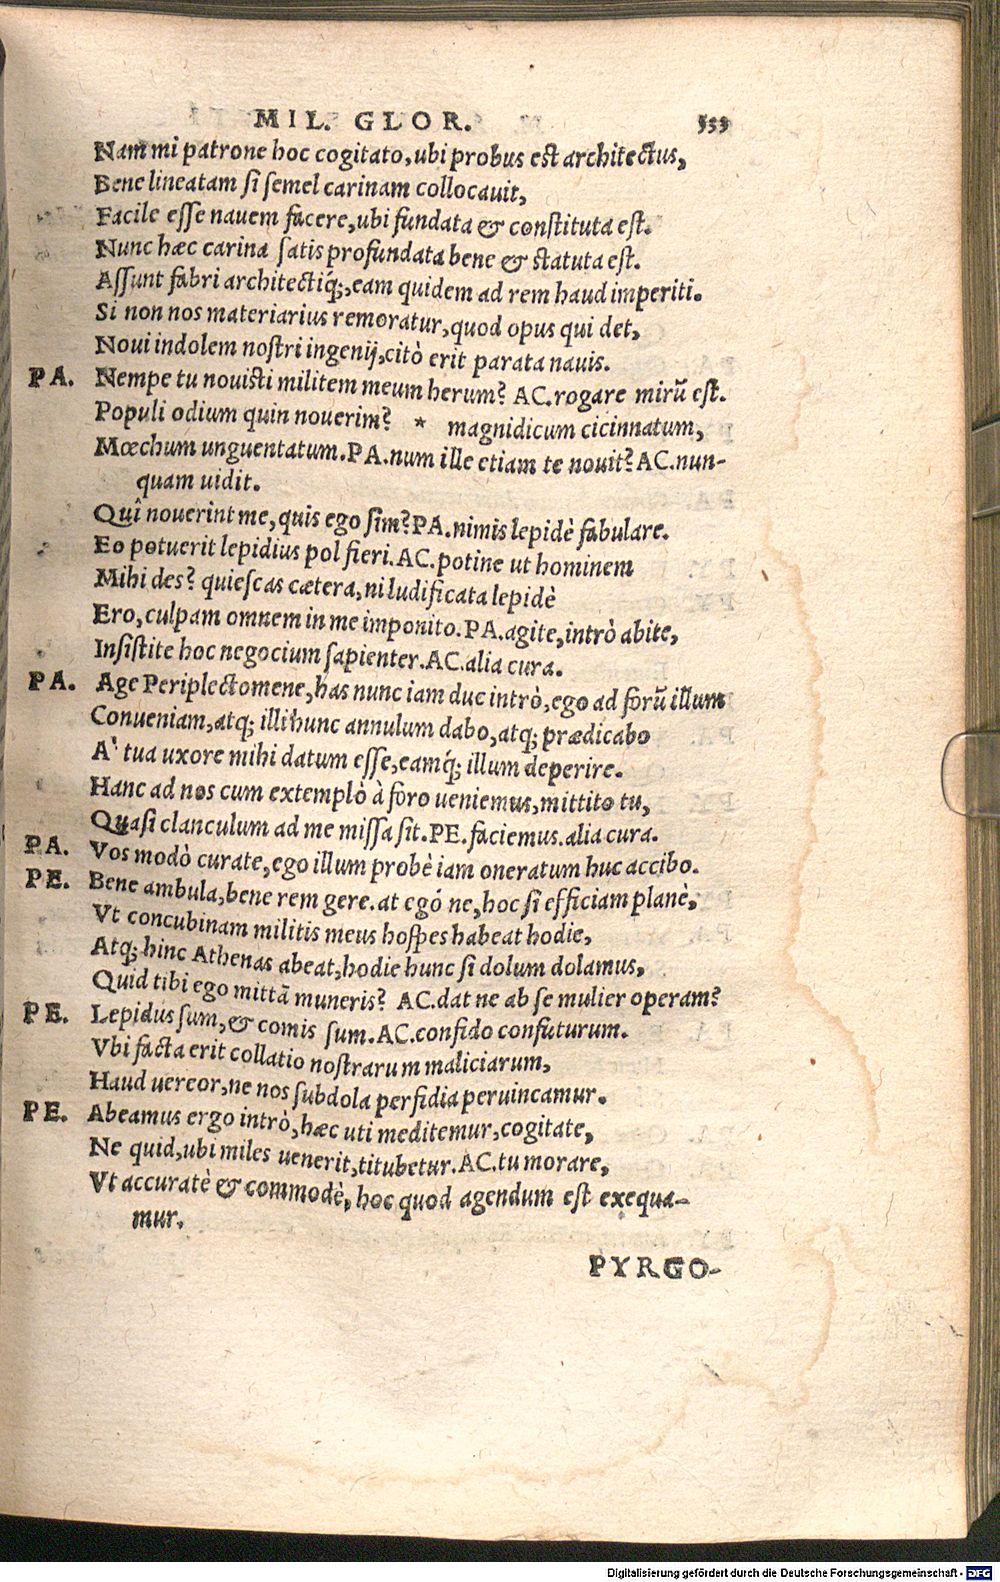 MIL. GLOR. 533
Nam mi patrone hoc cogitato, ubi probus est architectus,
Bene lineatam si semel carinam collocavit,
Facile esse navem facere, ubi fundata & constituta est.
Nunc hæc carina satis profundata bene & statuta est.
Assunt fabri architectiq́;, eam quidem ad rem haud imperiti.
Si non nos materiarius remoratur, quod opus qui det,
Novi indolem nostri ingenij, citò erit parata navis.
PA. Nempe tu nouisti militem meum herum? AC. rogare mirũ est.
Populi odium quin nouerim? * magnidicum cicinnatum,
Mœchum unguentatum. PA. num ille etiam te nouit? AC. nun-
quam uidit.
Quî nouerint me, quis ego sim? PA. nimis lepidè fabulare.
Eo potuerit lepidius pol fieri. AC. potine ut hominem
Mihi des? quiescas cætera, ni ludificata lepidè
Ero, culpam omnem in me imponito. PA. agite, intrò abite,
Insistite hoc negocium sapienter. AC. alia cura.
PA. Age Periplectomene, has nunc iam duc intrò, ego ad forũ illum
Conueniam, atq; illi hunc annulum dabo, atq; prædicabo
A' tua uxore mihi datum esse, eamq́; illum deperire.
Hanc ad nos cum extemplò à foro ueniemus, mittito tu,
Quasi clanculum ad me missa sit. PE. faciemus. alia cura.
PA. Vos modò curate, ego illum probè iam oneratum huc accibo.
PE. Bene ambula, bene rem gere. at egó ne, hoc si efficiam planè,
Vt concubinam militis meus hospes habeat hodie,
Atq; hinc Athenas abeat, hodie hunc si dolum dolamus,
Quid tibi ego mittã muneris? AC. dat ne ab se mulier operam?
PE. Lepidus sum, & comis sum. AC. confido confuturum.
Vbi facta erit collatio nostrarum maliciarum,
Haud uereor, ne nos subdola perfidia peruincamur.
PE. Abeamus ergo intrò, hæc uti meditemur, cogitate,
Ne quid, ubi miles uenerit, titubetur. AC. tu morare,
Vt accuratè & commodè, hoc quod agendum est exequa-
mur.
PYRGO-
Digitalisierung gefördert durch die Deutsche Forschungsgemeinschaft - DFG